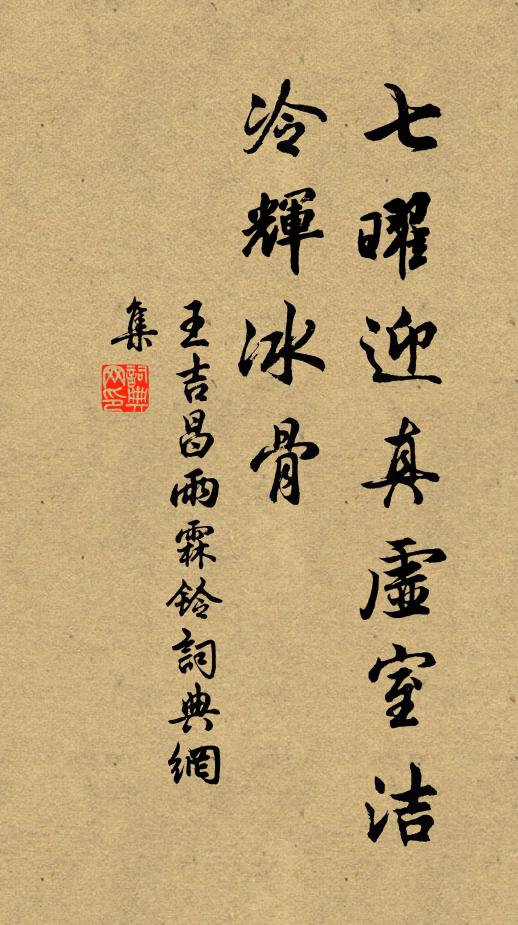 七曜迎真虛室洁
冷輝冰骨
王吉昌雨霖鈴詞典網
集
詞典
网印